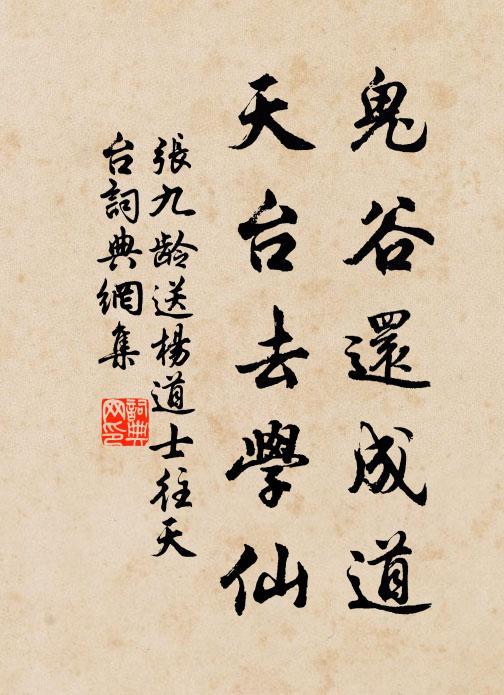 鬼谷還成道
天台去學仙
張九龄送楊道士往天
台詞典網集
詞典
网印